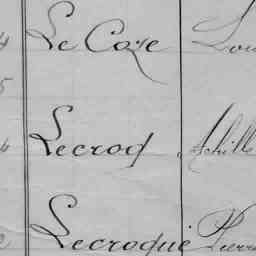 4 Le Coze Lou
5
Lecroq Achille
2 Lecroqué Pierre